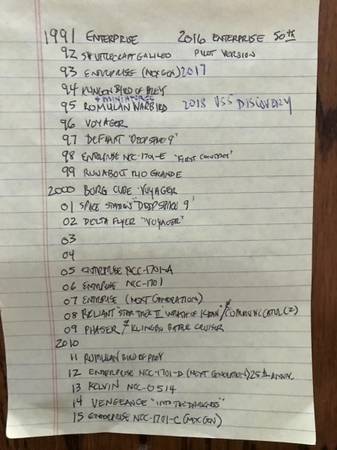 1991 ENTERPRISE 2016 ENTERPRISE 50th
92 SHUTTLECRAFT GALILEO PILOT VERSION
93 ENTERPRISE (NEXGEN) 2017
94 KLINGON BIRD OF PREY
95 ROMULAN WARBIRD 2018 USS DISCOVERY
96 VOYAGER
97 DEFIANT "DEEP SPACE 9"
98 ENTERPRISE NCC-1701-E "FIRST CONTACT"
99 RUNABOUT RIO GRANDE
2000 BORG CUBE "VOYAGER"
01 SPACE STATION "DEEP SPACE 9"
02 DELTA FLYER "VOYAGER"
03
04
05 ENTERPRISE NCC-1701-A
06 ENTERPRISE NCC-1701
07 ENTERPRISE (NEXT GENERATION)
08 RELIANT "STAR TREK II WRATH OF KHAN" / COMMUNICATOR (2)
09 PHASER / KLINGON BATTLE CRUISER
2010
11 ROMULAN BIRD OF PREY
12 ENTERPRISE NCC-1701-D (NEXT GENERATION) 25th ANNIV.
13 KELVIN NCC-0514
14 VENGEANCE "INTO THE DARKNESS"
15 ENTERPRISE NCC-1701-C (NEX GEN)